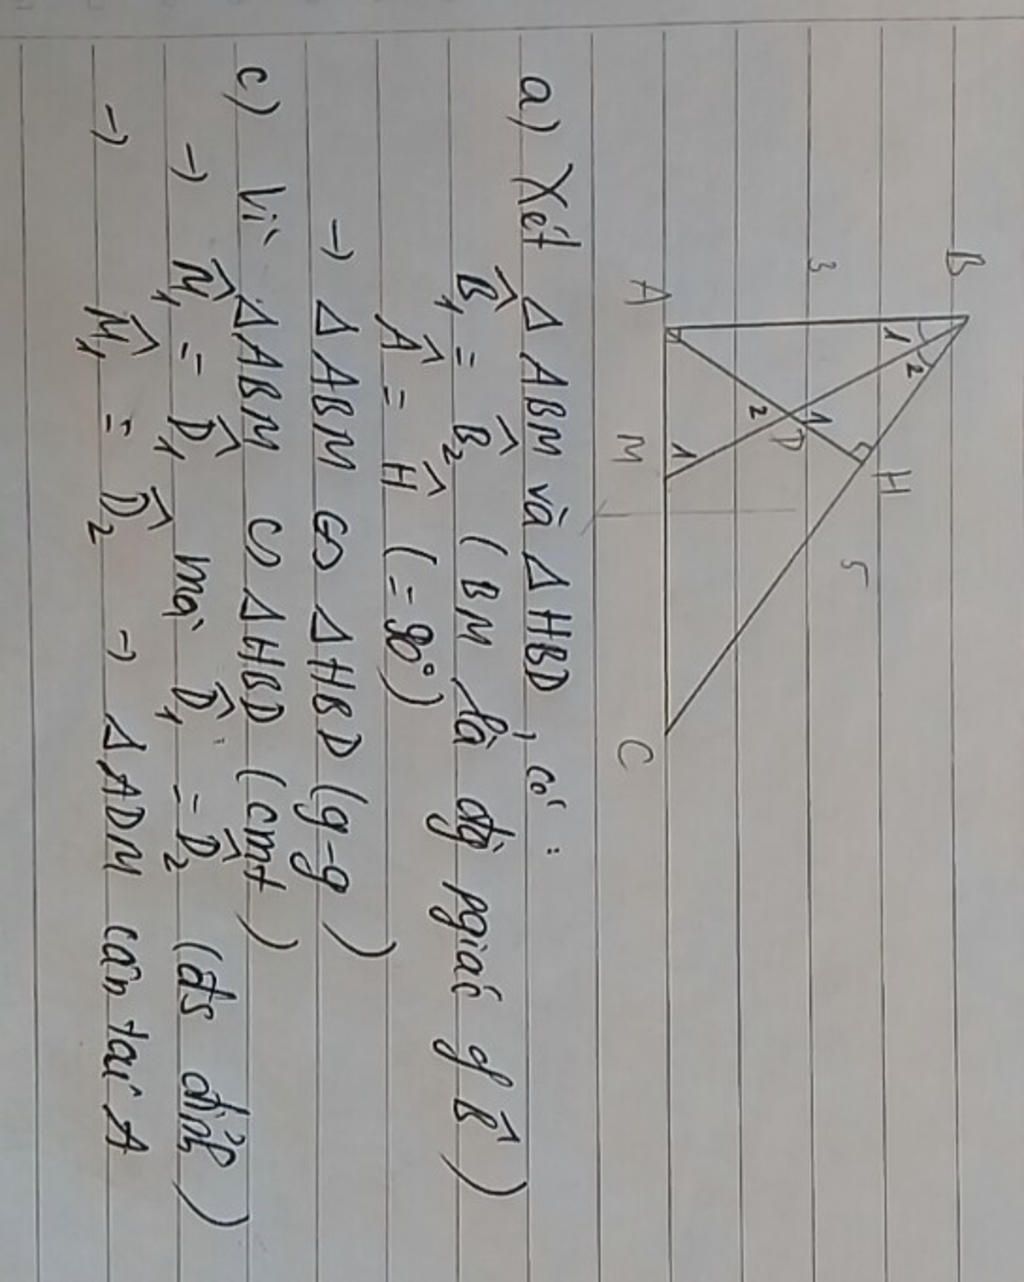 B
3
1
2
H
1
D
2
5
A
M
1
C
a) Xét Δ ABM và Δ HBD, có:
B̂₁ = B̂₂ (BM là đg pgiác of B̂)
Â = Ĥ (= 90°)
→ Δ ABM ∽ Δ HBD (g-g)
c) Vì Δ ABM ∽ Δ HBD (cmt)
→ M̂₁ = D̂₁ mà D̂₁ = D̂₂ (đs đỉnh)
→ M̂₁ = D̂₂ → Δ ADM cân tại A